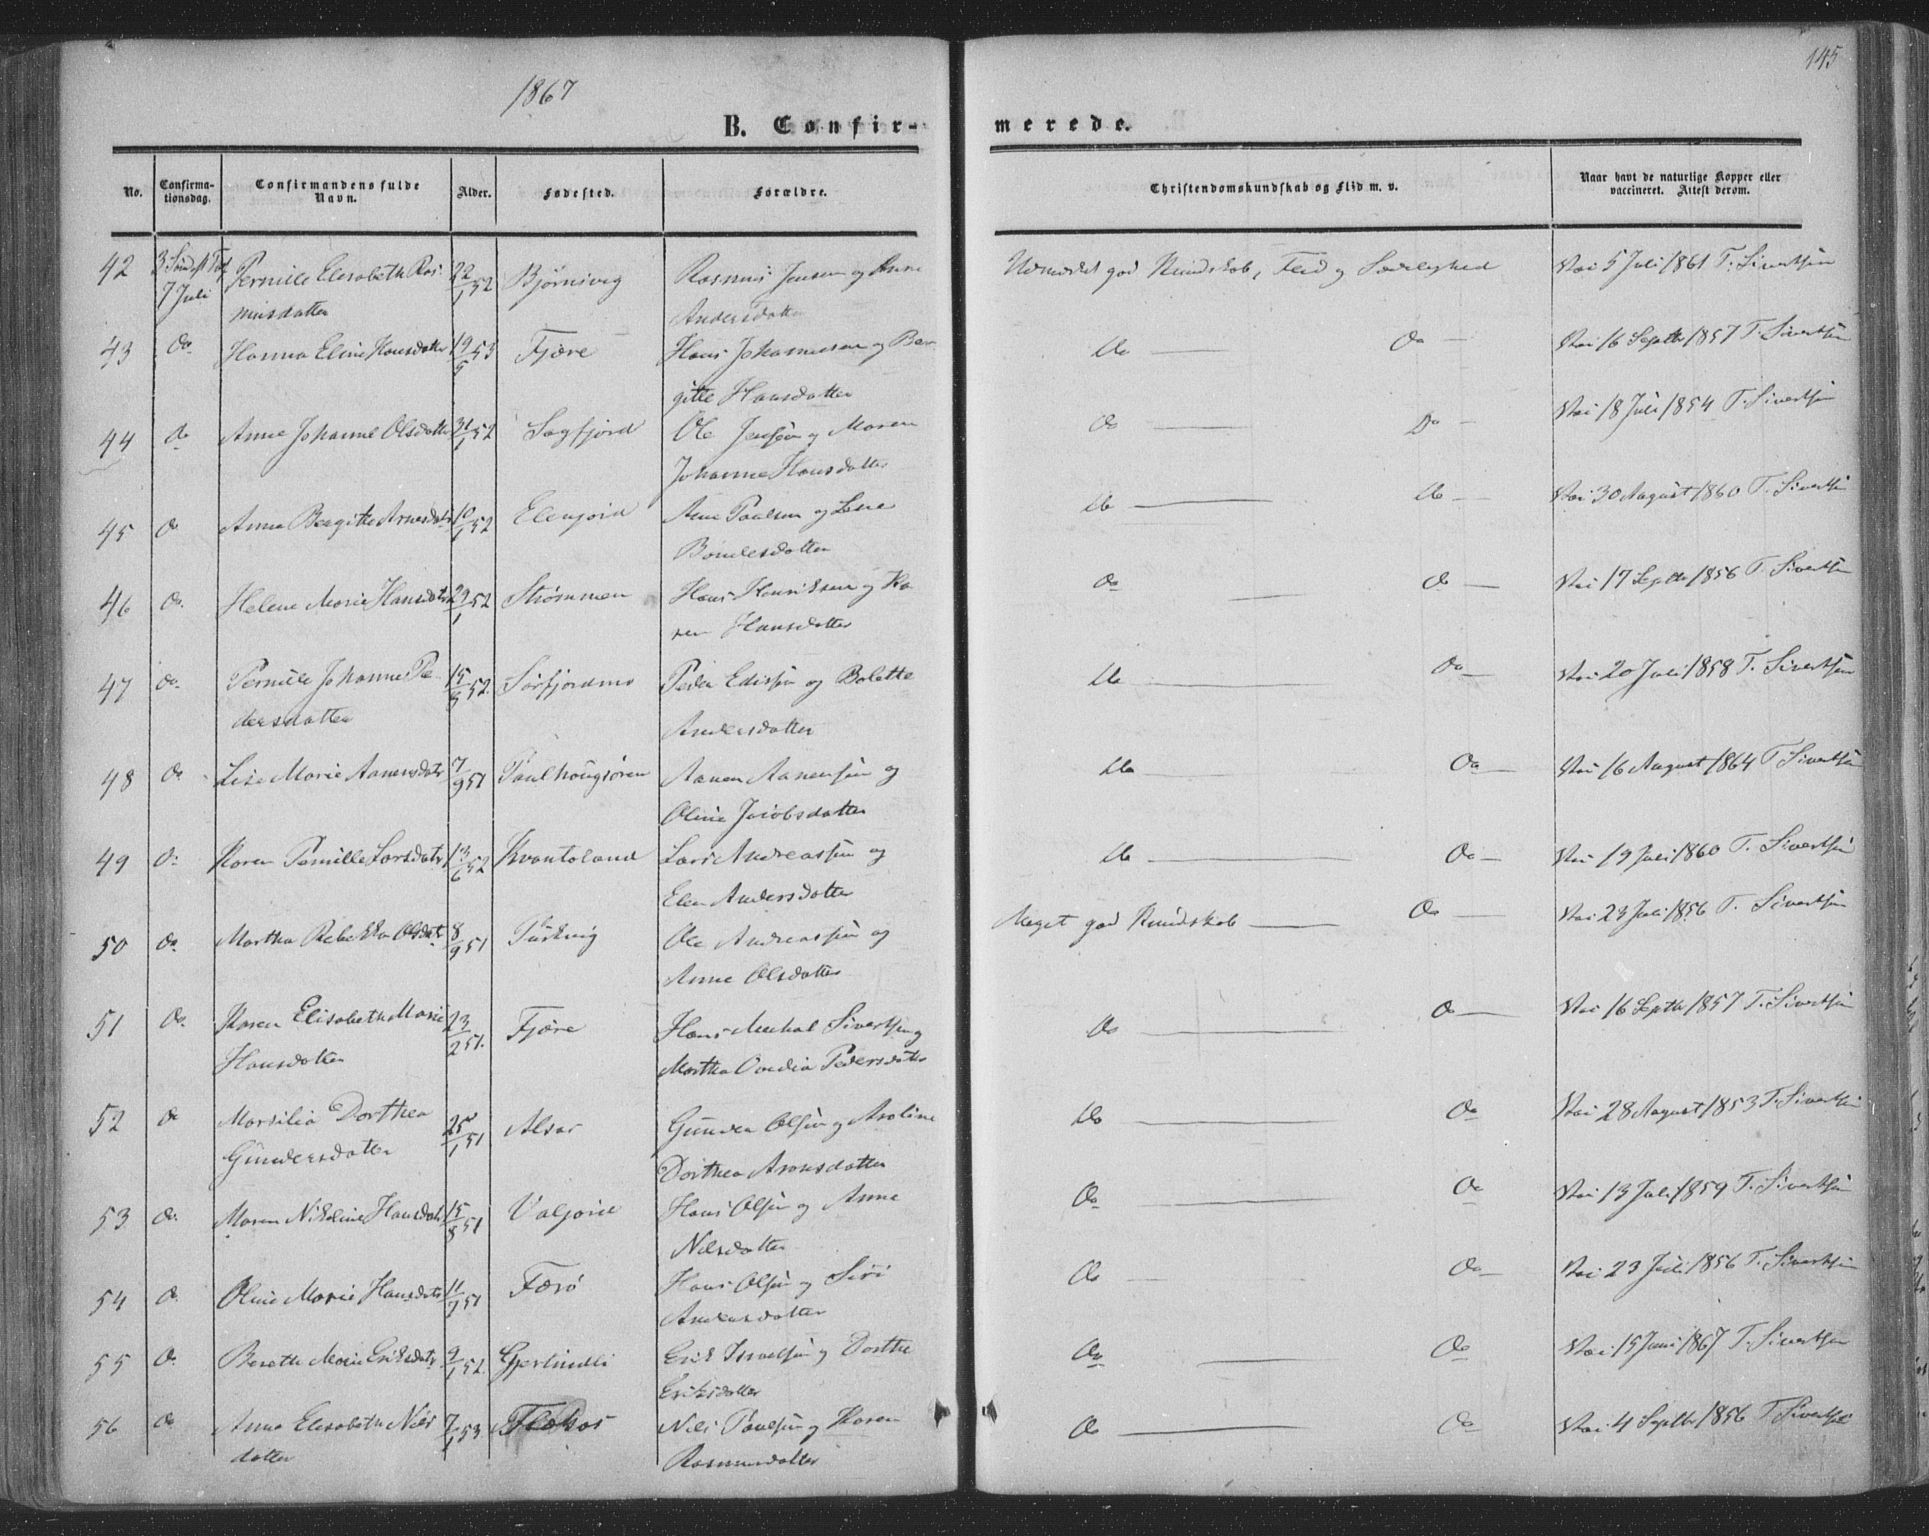 1867
145
B. Confir-
merede.
No.
Confirma-
tionsdag.
Confirmandens fulde
Navn.
Alder.
Fødested.
Forældre.
Christendomskundskab og Flid m. v.
Naar havt de naturlige Kopper eller
vaccineret. Attest derom.
42 3 Sönd. f. Tref. Pernille Elisabeth Ras- 22/1 52 Bjørnsvig Rasmus Jensen og Anne Udmærket god Kundskab, Flid og Sædelighed Vac. 5 Juli 1861 T. Sivertsen
7 Juli musdatter Andersdatter
43 Do Hanna Eline Hansdatter 19/5 53 Fjære Hans Johannesen og Ber- Do Do Vac. 16 Septbr 1857 T. Sivertsen
gitte Hansdatter
44 Do Anne Johanne Olsdatter 31/1 52 Sagfjord Ole Jensen og Maren Do Do Vac. 18 Juli 1854 T. Sivertsen
Johanne Hansdatter
45 Do Anna Bergitte Arnesdatr 10/1 52 Elvegjord Arne Paulsen og Lene Do Do Vac. 30 August 1860 T. Sivertsen
Bondesdatter
46 Do. Helene Marie Hansdatr 29/1 52 Strømmen Hans Henriksen og Ka- Do Do Vac. 17 Septbr 1856 T. Sivertsen
ren Hansdatter
47 Do. Pernille Johanne Pe- 15/5 52. Sørfjordmo Peder Edissen og Bolette Do Do Vac. 20 Juli 1858 T. Sivertsen
dersdatter Andersdatter
48 Do Lise Marie Aanensdatr 7/9 51 Paulhougsøren Aanen Aanensen og Do Do Vac. 16 August 1864 T. Sivertsen
Oline Jacobsdatter
49 Do Karen Pernille Larsdatr 13/6 52 Kvantoland Lars Andreassen og Do Do Vac. 19 Juli 1860 T. Sivertsen
Elen Andersdatter
50 Do. Martha Rebekka Olsdatr 8/9 51 Ole Andreassen og Meget god Kundskab Do Vac. 23 Juli 1856 T. Sivertsen
Anne Olsdatter
51 Do. Karen Elisabeth Marie 23/2 51. Fjære Hans Michal Sivertsen og Do Do Vac. 16 Septbr 1857 T. Sivertsen
Hansdatter Martha Ovedia Pedersdatter
52 Do Marsilia Dorthea 25/1 51 Alsos Gunder Olsen og Aroline Do Do Vac. 28 August 1853 T. Sivertsen
Gundersdatter Dorthea Aronsdatter
53 Do. Maren Nikoline Hansdatr 15/8 51 Valjord Hans Olsen og Anne Do Do Vac. 13 Juli 1859 T. Sivertsen
Nilsdatter
54 Do. Oline Marie Hansdatr 11/7 51 Færö Hans Olsen og Siri Do Do Vac. 23 Juli 1856 T. Sivertsen
Andersdatter
55 Do. Bereth Marie Eriksdatr 9/1 52. Gjertindli Erik Israelsen og Dorthe Do Do Vac. 15 Juni 1867 T. Sivertsen
Eriksdatter
56 Do Anna Elisabeth Nils- 7/1 53. Flakos Nils Paulsen og Karen Do Do Vac. 4 Septbr 1856 T. Sivertsen
datter Rasmusdatter